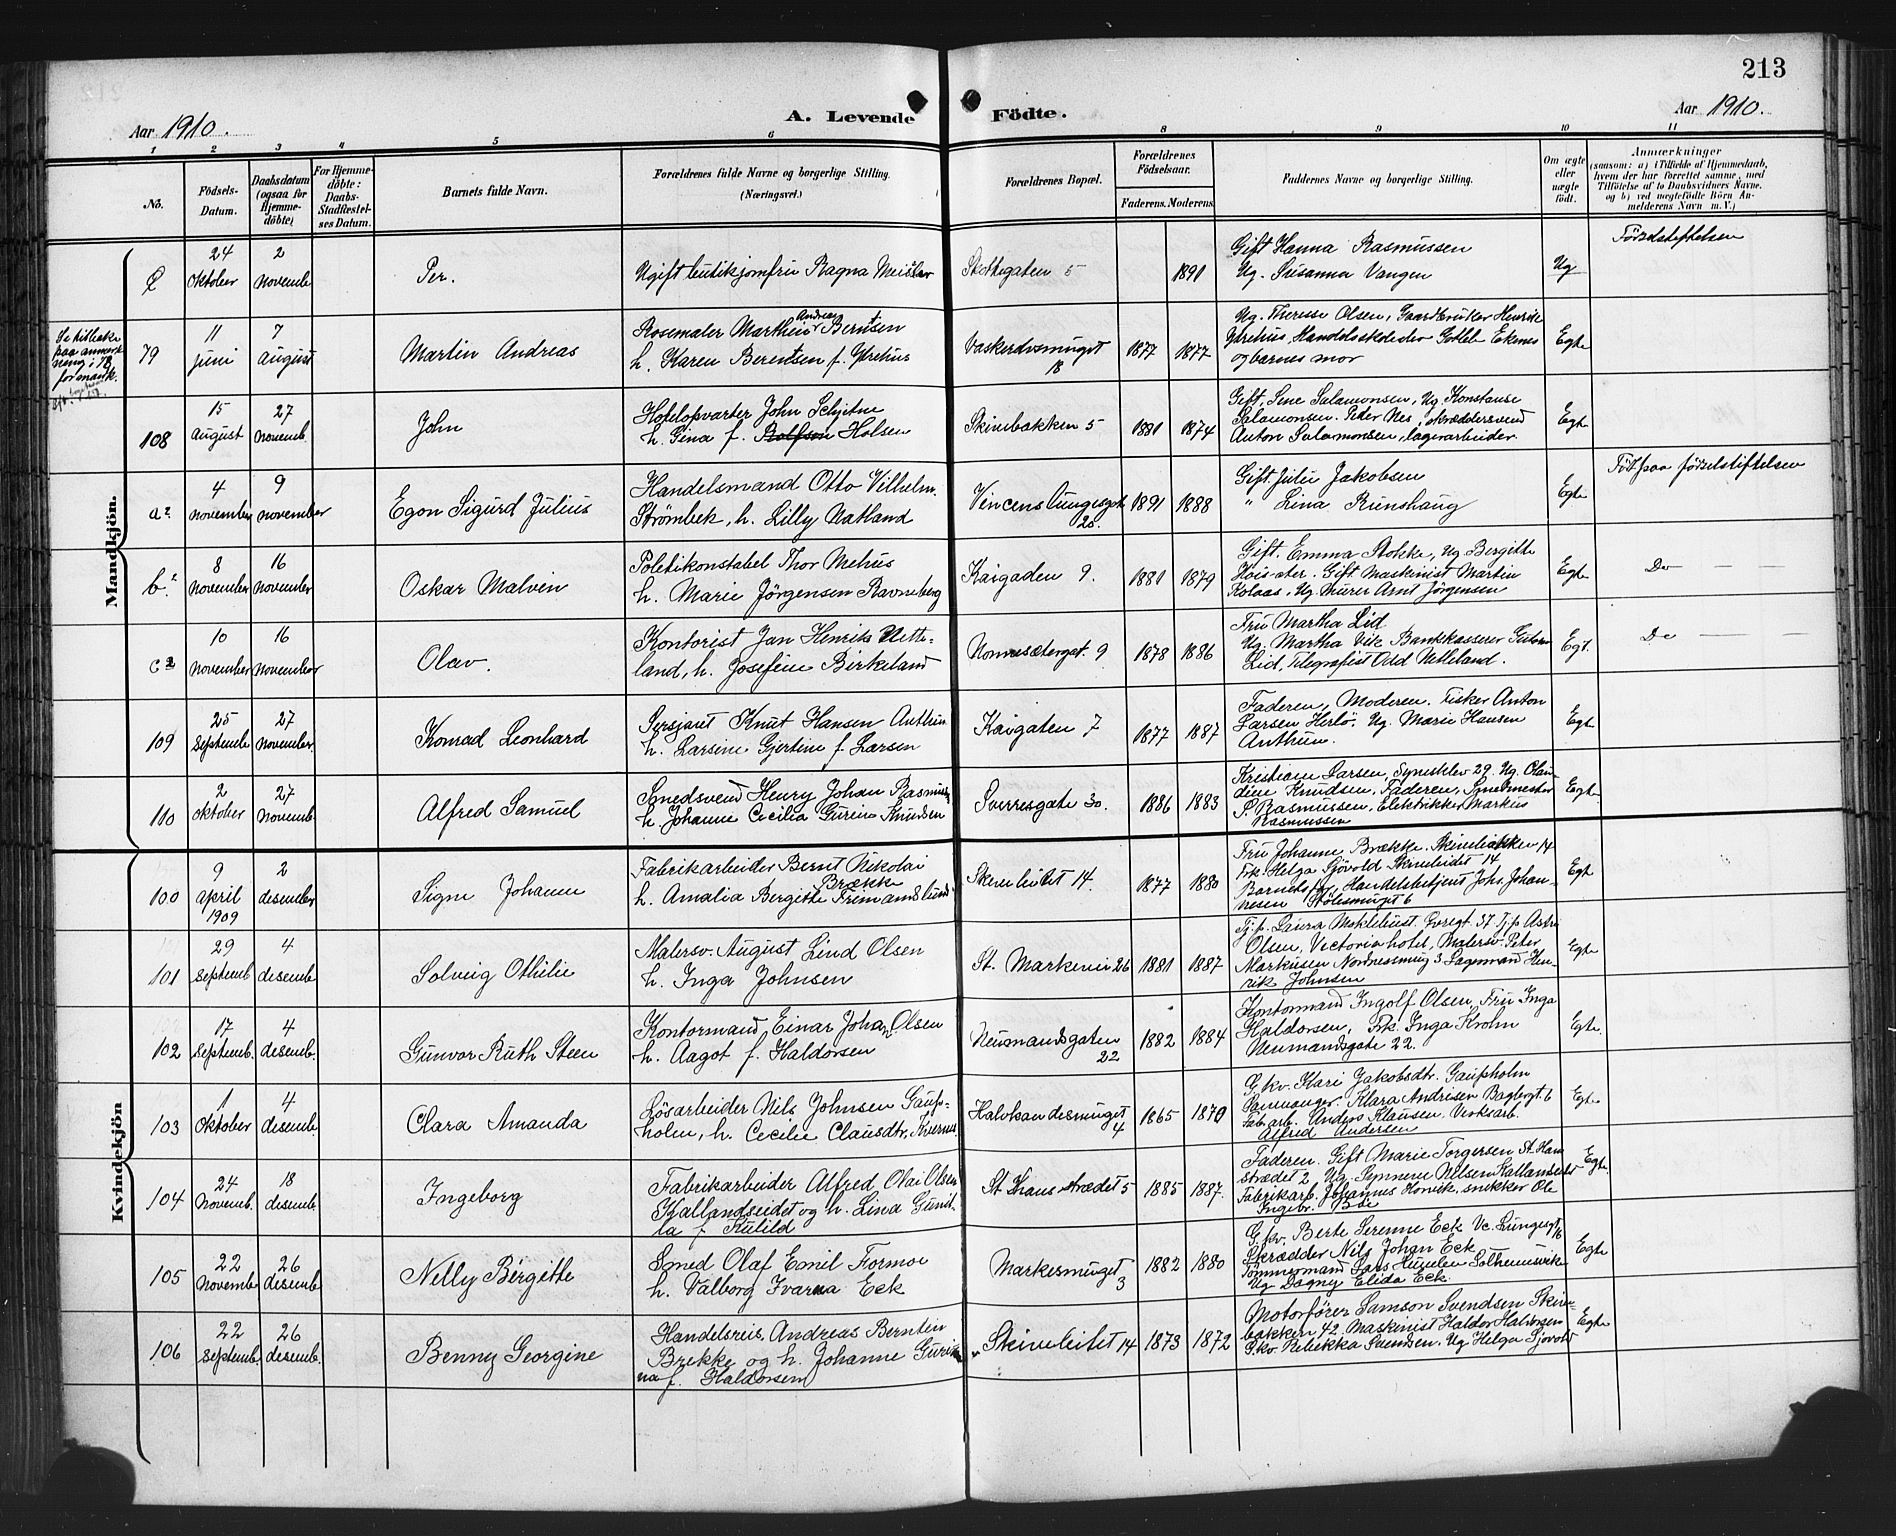 213
Aar 1910.
A. Levende Födte.
Aar 1910.
1 2 3 4 5 6 8 9 10 11
No.
Födsels-Datum.
Daabsdatum (ogsaa for Hjemmedöbte)
For Hjemmedöbte: Daabs-Stadfestelses Datum.
Barnets fulde Navn.
Forældrenes fulde Navne og borgerlige Stilling. (Næringsvei.)
Forældrenes Bopæl.
Forældrenes Födselsaar.
Faderens. Moderens.
Faddernes Navne og borgerlige Stilling.
Om ægte eller uægte födt.
Anmærkninger
(saasom: a) i Tilfælde af Hjemmedaab, hvem der har forrettet samme, med Tilföielse af to Daabsvidners Navne, og b) ved uægtefödte Börn Anmelderens Navn m. V.)
Mandkjön.
24 Oktober
2 Novemb
Per.
Ugift butikjomfru Ragna
5
1891
Gift Hanna Rasmussen
Ug. Susanna Vangen
Ug
79
11 juni
7 august
Martin Andreas
Rosemaler Martin Andreas Berntsen
h. Karen Berentsen f. Ytrehus
18
1877 1877
Ug. Therese Olsen, Gaardbruker Henrik
Ytrehus Handelsskoleelev
og barnets mor
Egte
108
15 August
27 Novemb.
John
Hotelopvarter John
h. Gina f. Holsen
Skivebakken 5
1881 1874
Gift, Sine Salamonsen, Ug Konstanse
Salamonsen. Peter Nes, skræddersvend
Anton Salamonsen, lagerarbeider
Egte
a2
4 November
9 November
Egon Sigurd Julius
Handelsmand Otto Vilhelm
Strömbek, h. Lilly Natland
Vincens Lungesgate
1891 1888
Gift Julie Jakobsen
" Lina Runshaug
Egte
Född paa fødselstiftelsen
b2
8 November
16 November
Oskar Malvin
Politikonstabel Thor Mehus
h. Marie Jörgensen Ravneberg
Kaigaden 9.
1881 1879
Gift. Emma Stokke, Ug Bergitte
Gift Maskinist Martin
Kolaas, Ug Murer Arnt Jörgensen
Egte
Do — —
c2
10 November
16 November
Olav.
Kontorist Jan Henrik Nette-
land, h. Josefine Birkeland
Nonnesæterget. 9
1878 1886
Fru Martha Lid
Ug. Martha Vik Bankkasserer
Lid, Telegrafist Odd Netteland.
Egt.
Do — —
109
25 Septemb
27 November
Konrad Leonhard
Sersjant Knut Hansen Anthun
h. Larsine Gjertine f. Larsen
Kaigaten 7
1877 1887
Faderen, Moderen. Fisker Anton
Larsen Herlö. Ug. Marie Hansen
Anthun.
Egte
110
2 Oktober
27 Novemb.
Alfred Samuel
Smedsvend Henry Johan Rasmussen
h. Johanne Cecilia Gurine Knudsen
Sverresgate 30.
1886 1883
Kristiane Larsen, 29. Ug. Clau-
dine Knudsen, Faderen, Smedmester
S. Rasmussen, Elektrikker Markus
Rasmussen
Egte
Kvindekjön
100
9 April 1909
2 desember
Signe Johanne
Fabrikarbeider Bernt Nikolai
Brække
h. Amalia Bergitte
14.
1877 1880
Fru Johanne Brække. Skivebakken 14
Frk. Helga Sjövold 14
Barnets far, Handelsbetjent Johs. Johan-
nesen Stölesmuget 6
Egt
101
29 Septemb
4 desemb
Solveig Othilie
Malersv. August Lind Olsen
h. Inga Johnsen
St. Markevei 26
1881 1887
Tj.p. Laura 37 Tj.p Astri
Olsen, Victoria hotel, Malersv. Peter
Markusen Nordnessmug 3 Lagermand Hen-
rik Johnsen
Egte
102
17 Septemb.
4 desemb.
Gunvor Ruth Steen
Kontormand Einar Johan Olsen
h. Aagot f. Haldorsen
Neumandsgaten
22
1882 1884
Kontormand Ingolf Olsen, Fru Inga
Haldorsen, Frk. Inga Krohn
Neumandsgate 22.
Egte.
103
1 Oktober
4 desemb.
Clara Amanda
Lösarbeider Nils Johnsen Gaup-
holm, h. Cecilie Clausdtr.
Halvkandesmuget
4
1865 1870
G.kv. Kari Jakobsdtr. Gaupholm
Klara Andersen 6
Fab.arb. Anders Klausen, Verksarb.
Alfred Andersen
Egte
104
24 Novemb.
18 desemb.
Ingeborg
Fabrikarbeider Alfred Olai Olsen
Kallandseidet og h. Lina Gunil-
la f.
St. Hans strædet 5
1885 1887.
Faderen. Gift Marie Torgersen St. Hans
strædet 2 Ug. Synneve Nilsen Kallandseidet
Fabrikarb. Johannes snikker Ole
Ingebr. Böe
Egte.
105
22 Novemb
26 desemb.
Nelly Bergitte
Smed Olaf Emil Formoe
h. Valborg Ivarna Eck
Markesmuget
3
1882 1880
G.kv. Berte Serenne Eck
Skrædder Nils Johan Eck
Tömmermand Lars
Ug Dagny Elida Eck.
Egte
106
22 Septemb.
26 desemb.
Benny Georgine
Handelsreis. Andreas Berntin
Brekke og h. Johanne
f. Haldorsen
14
1873 1872
Motorförer Samson Svendsen Skive-
bakken 42 Maskinist Haldor Halvorsen
G.kv. Rebekka Svendsen. Ug Helga Sjövold
Egte